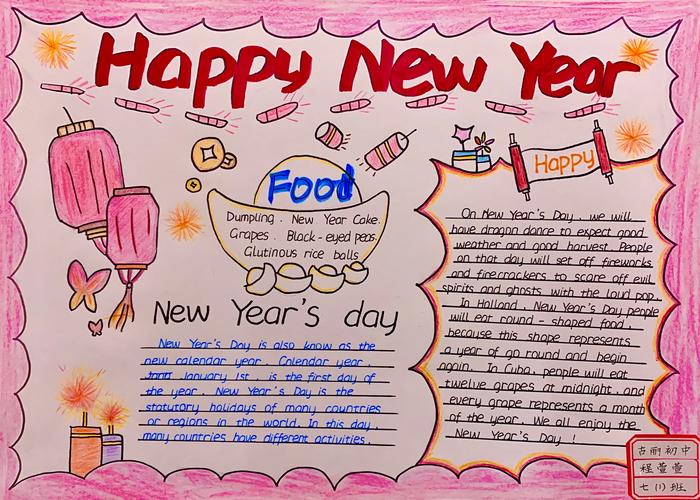 Happy New Year
Food
Dumpling . New Year Cake.
Grapes . Black-eyed peas.
Glutinous rice balls
New Year's day
New Year's Day is also know as the
new calendar year . Calendar year
January 1st . is the first day of
the year . New Year's Day is the
statutory holidays of many countries
or regions in the world. In this day,
many countries have different activities.
Happy
On New Year's Day , we will
have dragon dance to expect good
weather and good harvest. People
on that day will set off fireworks
and firecrackers to scare off evil
spirits and ghosts with the loud pop.
In Holland , New Year's Day people
will eat round - shaped food ,
because this shape represents
a year of go round and begin
again. In Cuba, people will eat
twelve grapes at midnight, and
every grape represents a month
of the year. We all enjoy the
New Year's Day !
初中
程萱萱
七(1)班